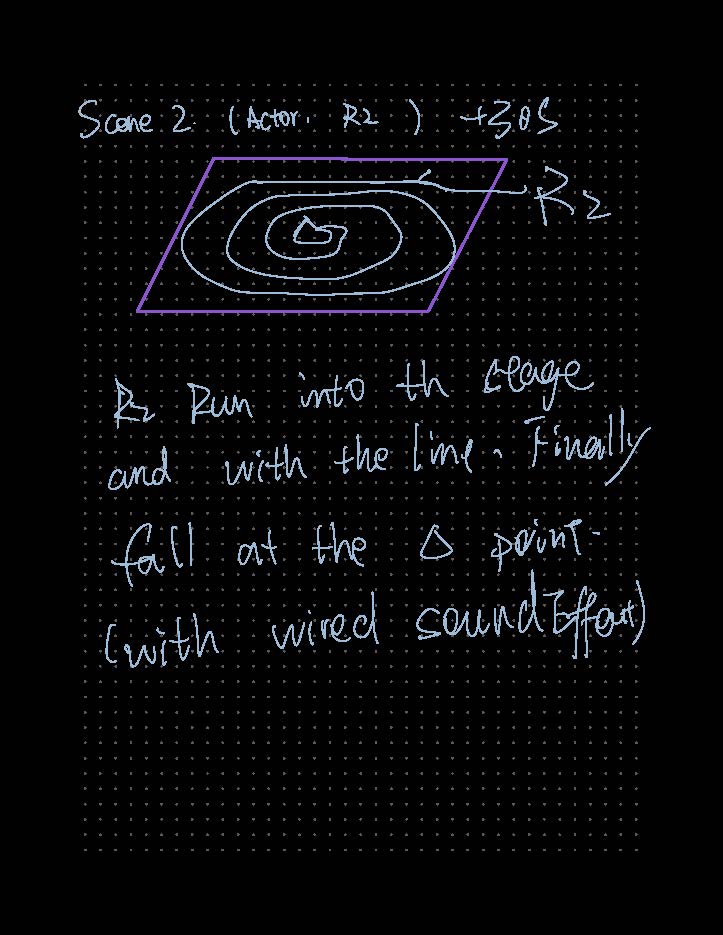 Scene 2. (Actor. R2 ) +30S
R2
R2 Run into th stage
and with the line. Finally
fall at the △ point.
(with wired soundEffect)